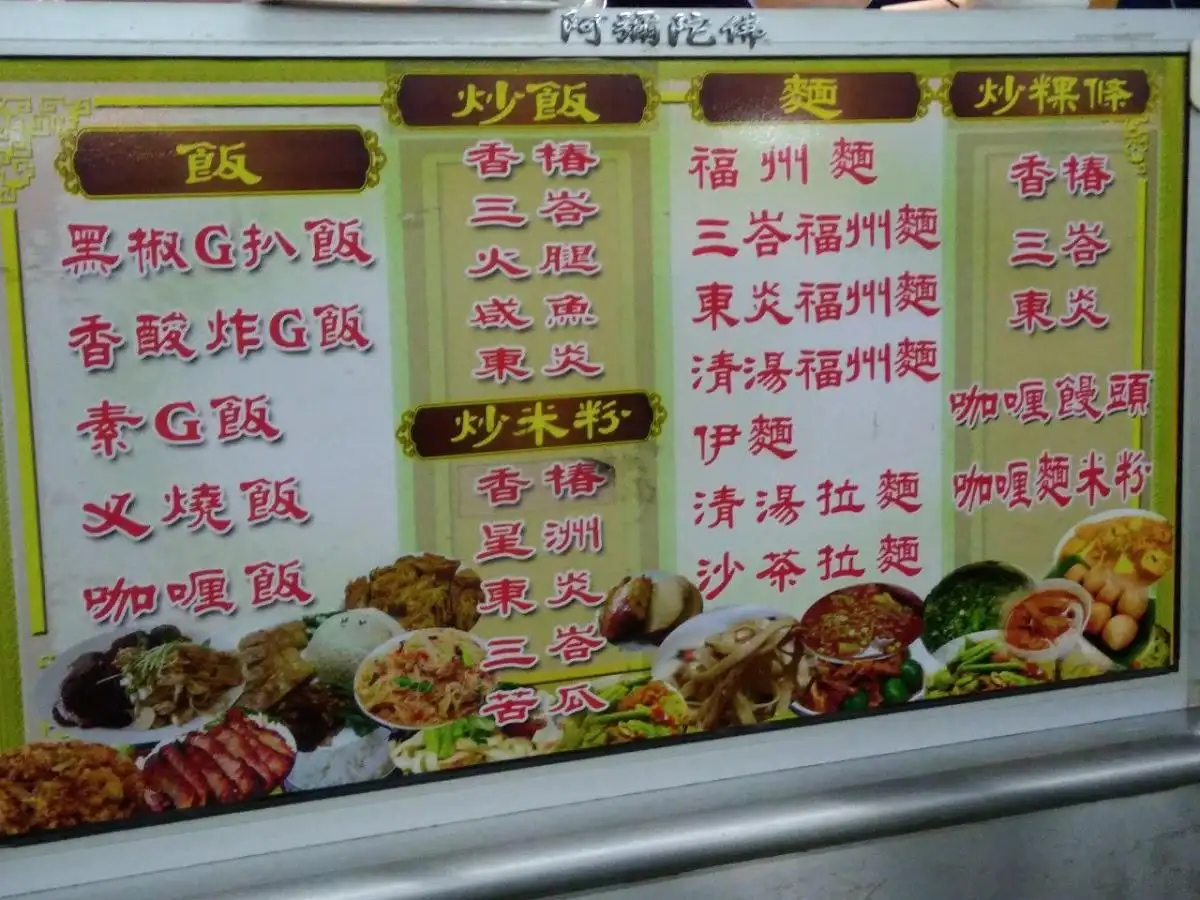 阿彌陀佛
飯
黑椒G扒飯
香酸炸G飯
素G飯
义燒飯
咖喱飯
炒飯
香椿
三峇
火腿
咸魚
東炎
炒米粉
香椿
星洲
東炎
三峇
苦瓜
麵
福州麵
三峇福州麵
東炎福州麵
清湯福州麵
伊麵
清湯拉麵
沙茶拉麵
炒粿條
香椿
三峇
東炎
咖喱饅頭
咖喱麵米粉